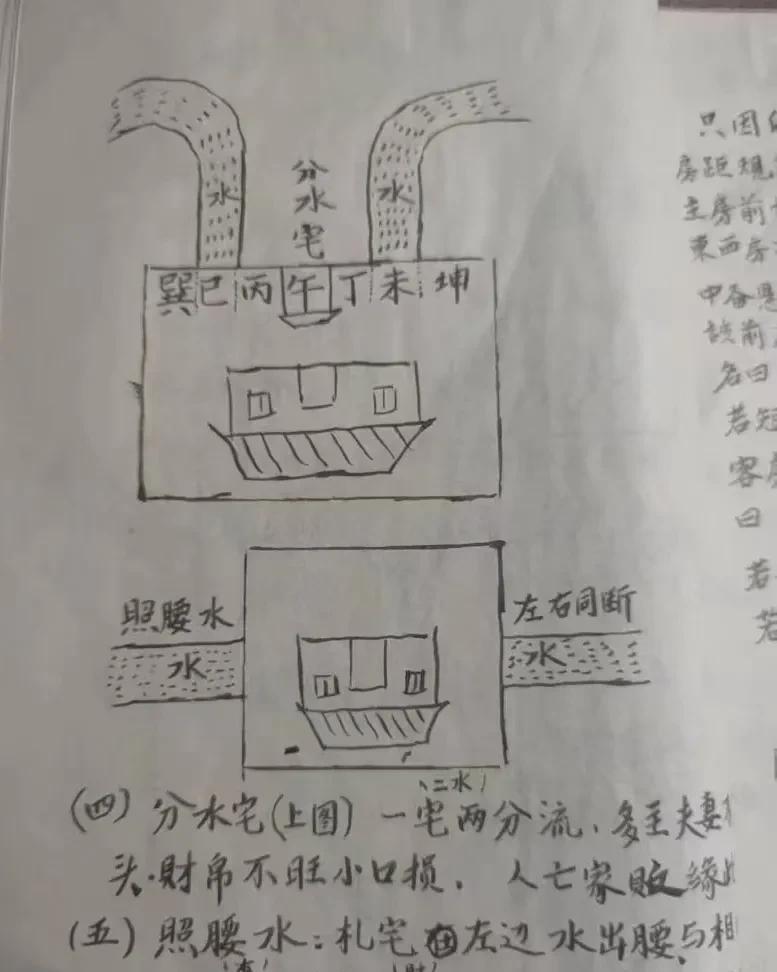 分水宅
水
水
巽巳丙午丁未坤
照腰水
左右同断
水
水
(二水)
(四)分水宅(上图)一宅两分流、多主夫妻
头.财帛不旺小口损.人亡家败缘
(五)照腰水:札宅左边水出腰、与相
只因
房距规
主房前
東西房
中备
前
名曰
若短
客房
曰
若
若